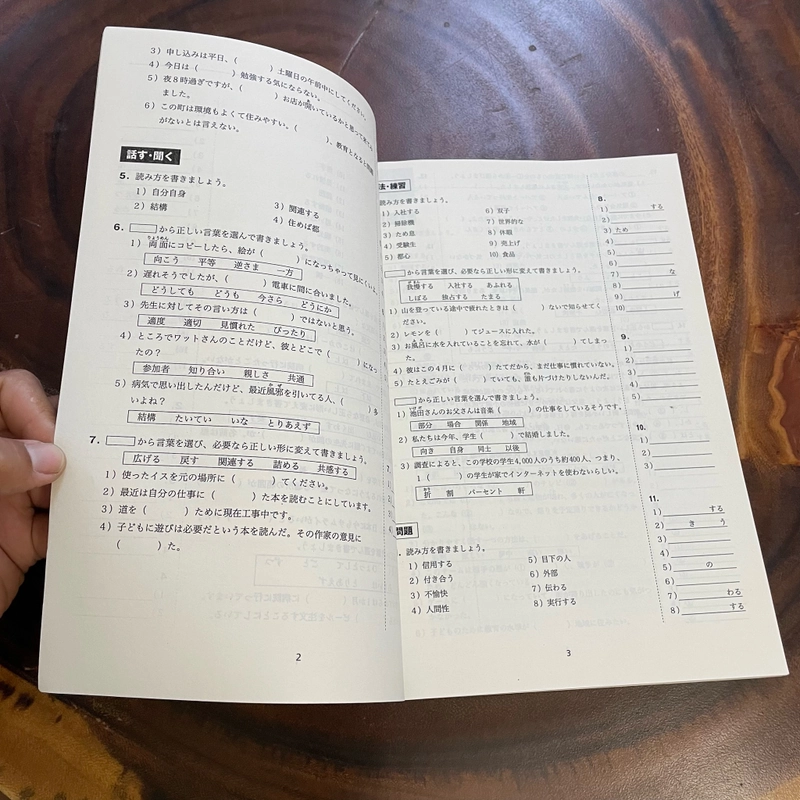 3）申し込みは平日、（　　）土曜日の午前中にしてください。
4）今日は（　　）勉強する気にならない。
5）夜８時過ぎですが、（　　）お店が開いているかと思って来てみ
ました。
6）この町は環境もよくて住みやすい。（　　）、教育となると問題
がないとは言えない。
話す・聞く
5．読み方を書きましょう。
1）自分自身
2）結構
3）関連する
4）住めば都
6．から正しい言葉を選んで書きましょう。
りょうめん
1）両面にコピーしたら、絵が（　　）になっちゃって見にくいよ。
向こう　平等　逆さま　一方
2）遅れそうでしたが、（　　）電車に間に合いました。
どうしても　どうも　今さら　どうにか
3）先生に対してその言い方は（　　）ではないと思う。
適度　適切　見慣れた　ぴったり
4）ところでワットさんのことだけど、彼とどこで（　　）になっ
たの？
参加者　知り合い　親しさ　共通
5）病気で思い出したんだけど、最近風邪を引いてる人、（　　）多
いよね？
結構　たいてい　いな　とりあえず
7．から言葉を選び、必要なら正しい形に変えて書きましょう。
広げる　戻す　関連する　詰める　共感する
1）使ったイスを元の場所に（　　）てください。
2）最近は自分の仕事に（　　）た本を読むことにしています。
3）道を（　　）ために現在工事中です。
4）子どもに遊びは必要だという本を読んだ。その作家の意見に
（　　）た。
2
法・練習
読み方を書きましょう。
1）入社する
2）掃除機
3）ため息
4）受験生
5）都心
6）双子
7）世界的な
8）休暇
9）売上げ
10）食品
から言葉を選び、必要なら正しい形に変えて書きましょう。
我慢する　入社する　あふれる
しぼる　独占する　たまる
1）山を登っている途中で疲れたときは（　　）ないで知らせてく
ださい。
2）レモンを（　　）てジュースに入れた。
3）お風呂に水を入れていることを忘れて、水が（　　）てしまっ
た。
4）彼はこの４月に（　　）たてだから、まだ仕事に慣れていない。
5）たとえごみが（　　）ていても、誰も片づけたりしないんだ。
から正しい言葉を選んで書きましょう。
いけだ
1）池田さんのお父さんは音楽（　　）の仕事をしているそうです。
部分　場合　関係　地域
2）私たちは今年、学生（　　）で結婚しました。
向き　自身　同士　以後
3）調査によると、この学校の学生4,000人のうち約400人、つまり、
1（　　）の学生が家でインターネットを使わないらしい。
折　割　パーセント　軒
問題
．読み方を書きましょう。
1）信用する
2）付き合う
3）不愉快
4）人間性
5）目下の人
6）外部
7）伝わる
8）実行する
3
8．
1）する
2）
3）ため
4）
5）
6）
7）な
8）
9）げ
10）
9．
1）
2）
3）
4）
5）
10．
1）
2）
3）
11．
1）する
2）き　う
3）
4）
5）の
6）
7）わる
8）する